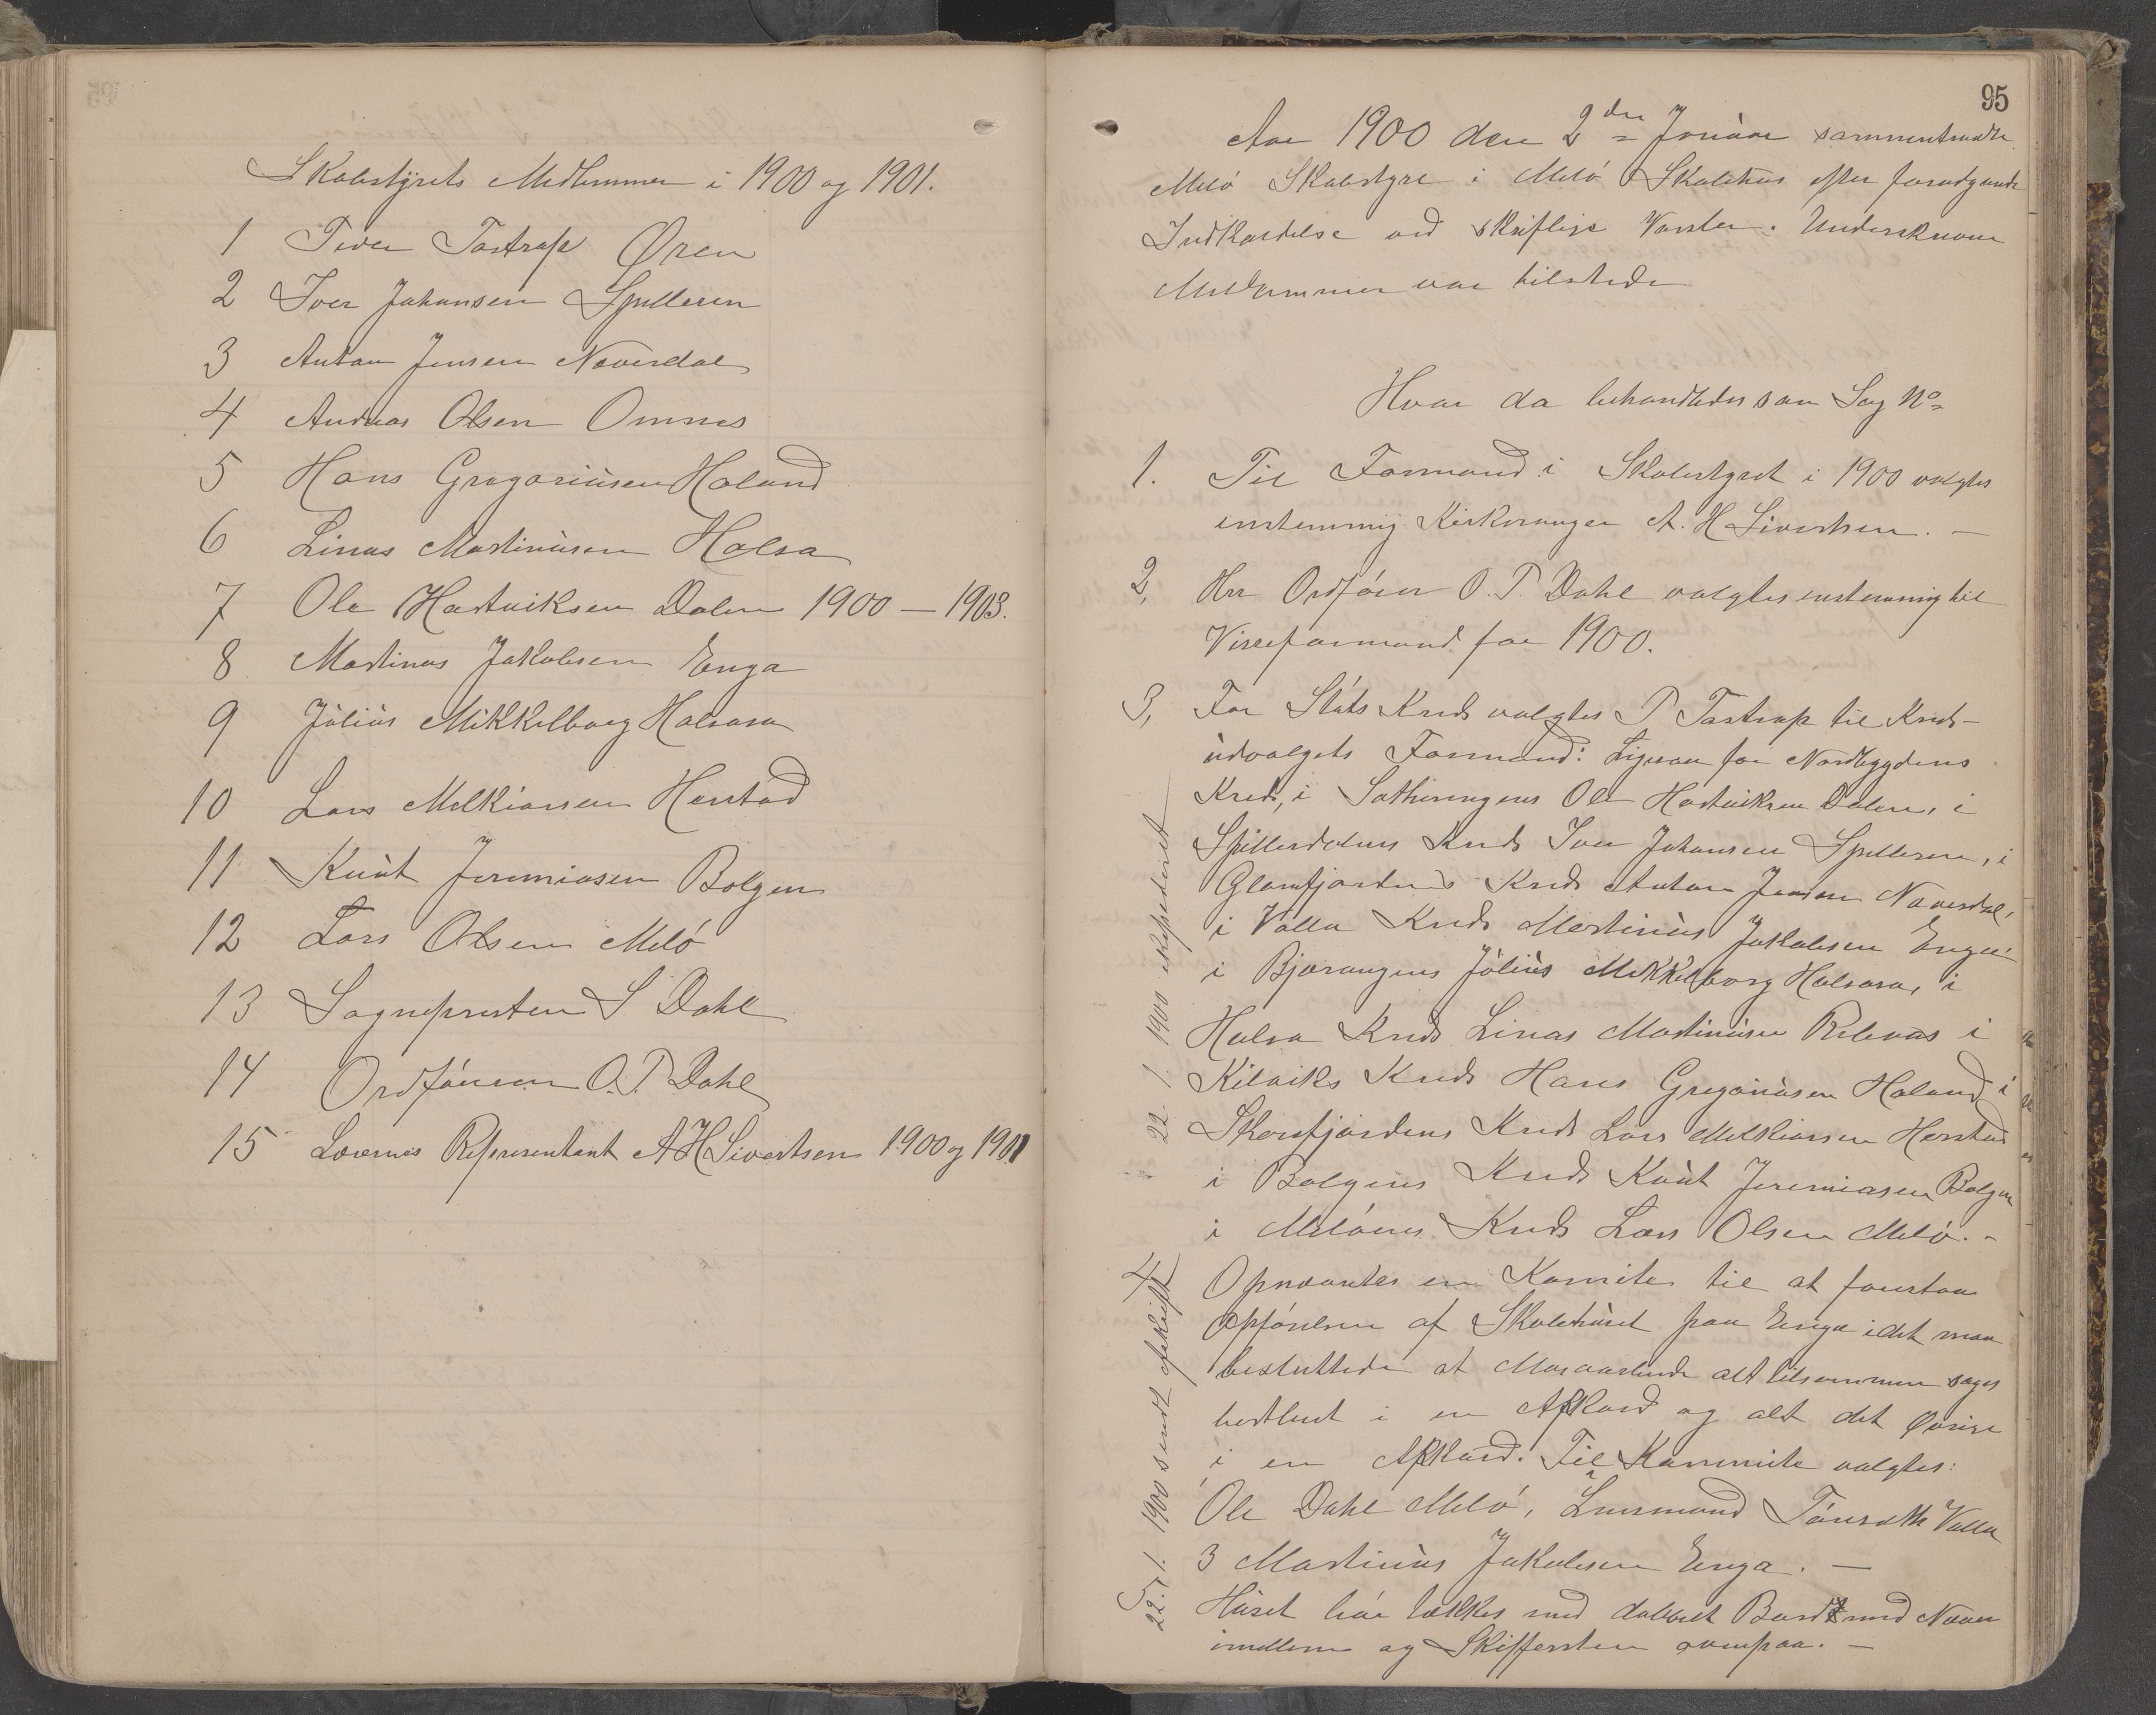 Skolestyrets Medlemmer i 1900 og 1901.
1 Peder Tostrup Øren
2 Iver Johansen Spilleren
3 Anton Jensen Næverdal
4 Andreas Olsen Omnes
5 Hans Gregoriusen Holand
6 Linus Martinusen Halsa
7 Ole Hartviksen Dalen 1900 — 1903.
8 Martinus Jakobsen Enga
9 Julius Mikkelborg Halsosa
10 Lars Melkiorsen Herstad
11 Knut Jeremiasen Bolgen
12 Lars Olsen Melö
13 Sognepresten S Dahl
14 Ordföreren O. P. Dahl
15 Lærernes Representant A H Sivertsen 1900 og 1901
95
Aar 1900 den 2den Januar sammentraadte
Melö Skolestyre i Melö Skolehus efter forudgaaende
Indkaldelse ved skriftlige Varsler. Underskrevne
Medlemmer var tilstede
Hvor da behandledes som Sag No
1. Til Formand i Skolestyret i 1900 valgtes
enstemmig Kirkesanger A. H Sivertsen. —
2, Hrr Ordförer O. P. Dahl valgtes enstemmig til
Viseformand for 1900.
3, For Støts Kreds valgtes P Tostrup til Kreds-
udvalgets Formand: Ligesaa for Nordbygdens
Kreds, i Sathørengens Ole Hartviksen Dalen, i
Spillerdalens Kreds Iver Johansen Spilleren, i
Glomfjordens Kreds Anton Jensen Næverdal,
i Valla Kreds Martinus Jakobsen Enga
i Bjærangens Julius Mikkelborg Halsosa, i
Halsa Kreds Linas Martinusen i
Kilviks Kreds Hans Gregoriusen Holand i
Skarsfjordens Kreds Lars Melkiorsen Herstad
i Bolgens Kreds Knut Jeremiasen Bolgen
i Melöens Kreds Lars Olsen Melö. -
22. 1. 1900 expederet
4 Opnævntes en Komite til at forestaa
Opförelsen af Skolehuset paa Enga idet man
besluttede at Murarbeide alt tilsammen søges
bortsat i en Akkord og alt det øvrige
i en Akkord. Til Kommite valgtes:
Ole Dahl Melö, Lensmand Valla
3 Martinus Jakobsen Enga. —
22. 1. 1900 sendt afskrift
5 Huset bör tækkes med dobbelt Bord med Næver
imellem og Skiffersten ovenpaa. —